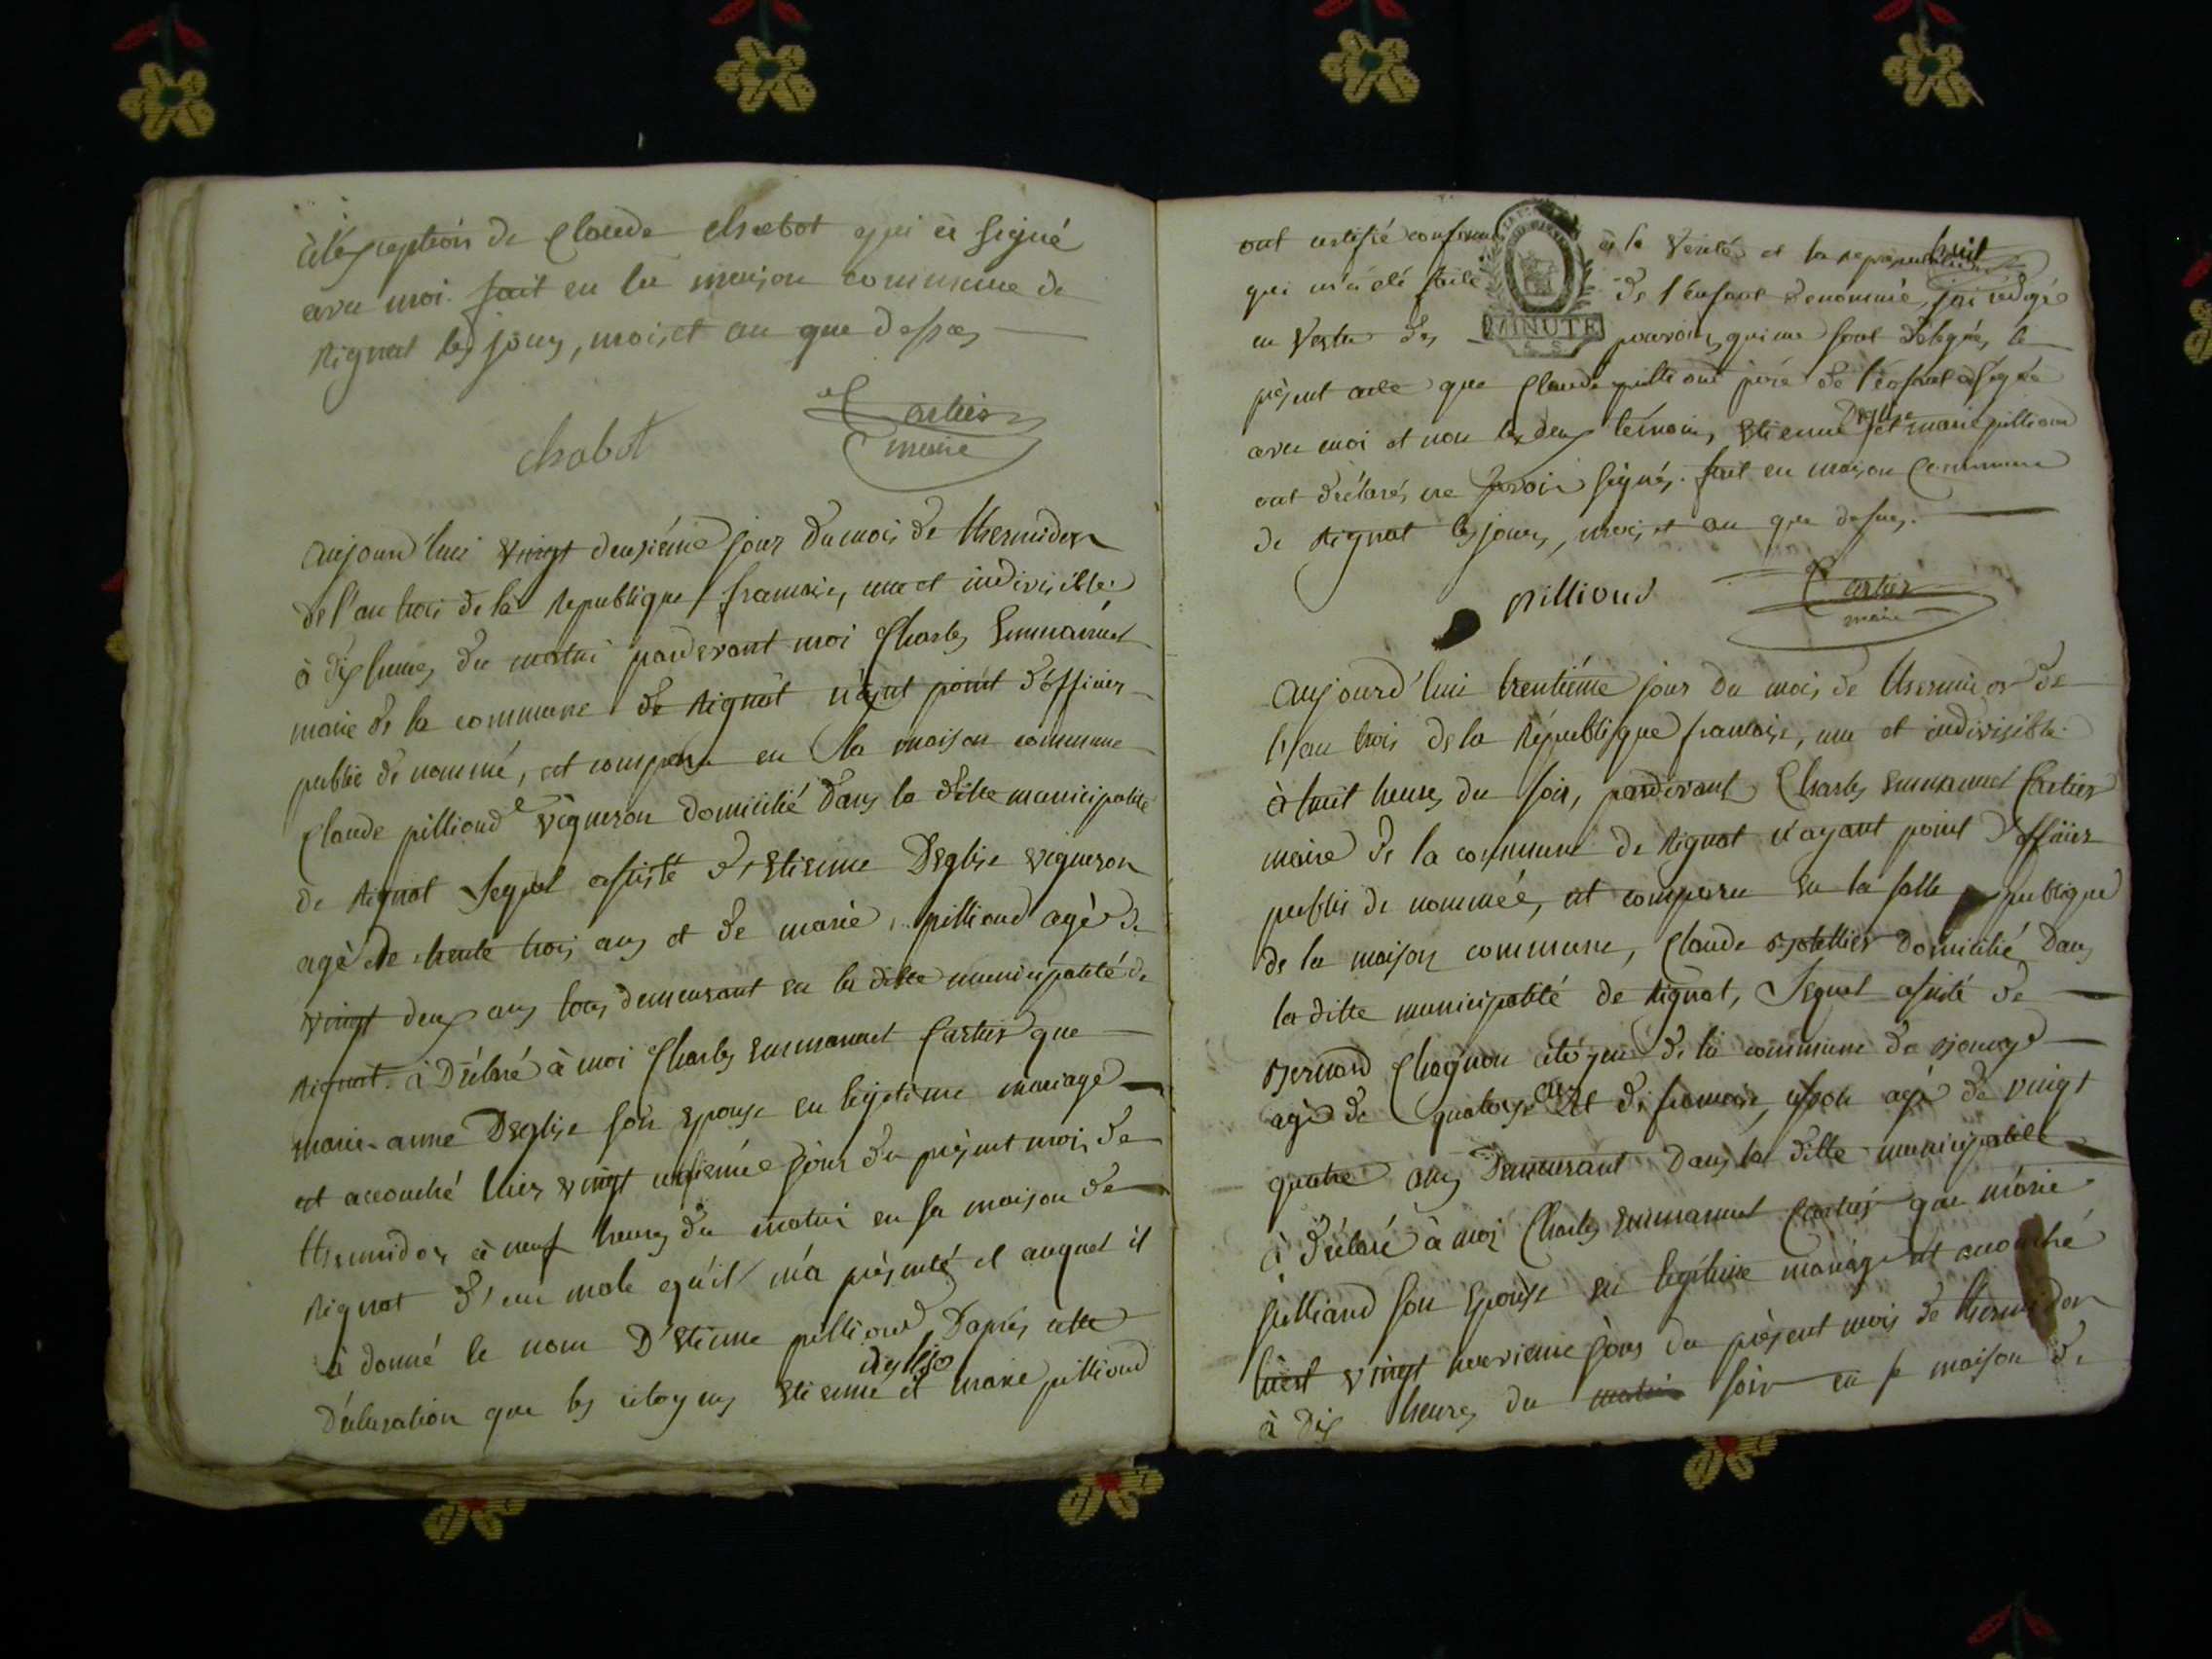 à l'exception de Claude Chabot qui a signé
avec moi. fait en la maison commune de
Rignat les jours, mois et an que dessus
Cartier
Chabot maire
aujourd'hui vingt deuxiéme jour du mois de thermidor
de l'an trois de la republique francaise, une et indivisible
à dix heures du matin pardevant moi Charles Emmanuel
maire de la commune de Rignat n'ayant point d'officier
public de nommé, est comparu en la maison commune
Claude pillioud vigneron domicilié dans la ditte municipalité
de Rignat lequel assisté d'Etienne Deglise vigneron
agé de trente trois ans et de marie pillioud agé de
vingt deux ans tous demeurant en la ditte municipalité de
Rignat. à Déclaré à moi Charles emmanuel Cartier que
marie-anne Deglise son epouse en legitime mariage
est accouché hier vingt unsieme jour du présent mois de
thermidor à neuf heures du matin en sa maison de
Rignat d'un male qu'il m'a présenté et auquel il
à donné le nom D'Etienne pilliond D'après cette
deglise
Déclaration que les citoyens Etienne et marie pilliond
ont certifié conforme à la verité et la representation
qui m'a été faite de l'enfant denommé, j'ai rédigé
en vertu des pouvoirs qui me sont delegués, le
MINUTE
présent acte que Claude pilliond pere de l'enfant a signé
Deglise
avec moi et non les deux témoins, Etienne et marie pilliond
ont déclarés ne savoir signés. fait en maison commune
de Rignat les jours, mois, et an que dessus.
pilliond Cartier
maire
aujourd'hui trentiéme jour du mois de thermidor de
l'an trois de la République francaise, une et indivisible
à huit heures du soir, pardevant Charles emmanuel Cartier
maire de la commune de Rignat n'ayant point d'officier
public de nommée, est comparu en la salle publique
de la maison commune, Claude domicilié Dans
la ditte municipalité de Rignat, lequel assisté de
Bernard Chagnon citoyen de la commune de
agé de quatorze ans et de francoise agé de vingt
quatre ans Demeurant Dans la ditte municipalité
à déclaré à moi Charles emmanuel Cartier que marie
pilliand son Epouse en legitime mariage est accouché
hier vingt neuvieme jour du présent mois de thermidor
à dix heures du matin soir en sa maison de